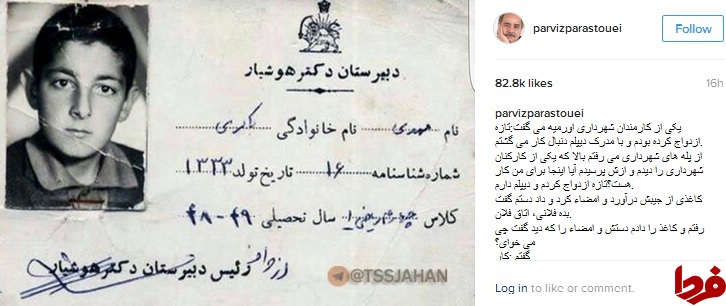 دبیرستان دکتر هوشیار
نام مهدی نام خانوادگی باکری
شماره شناسنامه ۱۶ تاریخ تولد ۱۳۳۳
کلاس چهارم ریاضی سال تحصیلی ۴۹-۴۸
رئیس دبیرستان دکتر هوشیار
@TSSJAHAN
parvizparastouei
Follow
82.8k likes
16h
parvizparastouei
یکی از کارمندان شهرداری اورمیه می گفت:تازه
ازدواج کرده بودم و با مدرک دیپلم دنبال کار می گشتم.
از پله های شهرداری می رفتم بالا که یکی از کارکنان
شهرداری را دیدم و ازش پرسیدم آیا اینجا برای من کار
هست؟تازه ازدواج کردم و دیپلم دارم.
کاغذی از جیبش درآورد و امضاء کرد و داد دستم گفت
بده فلانی، اتاق فلان.
رفتم و کاغذ را دادم دستش و امضاء را که دید گفت چی
می خوای؟
گفتم :کار
Log in to like or comment.
فردا